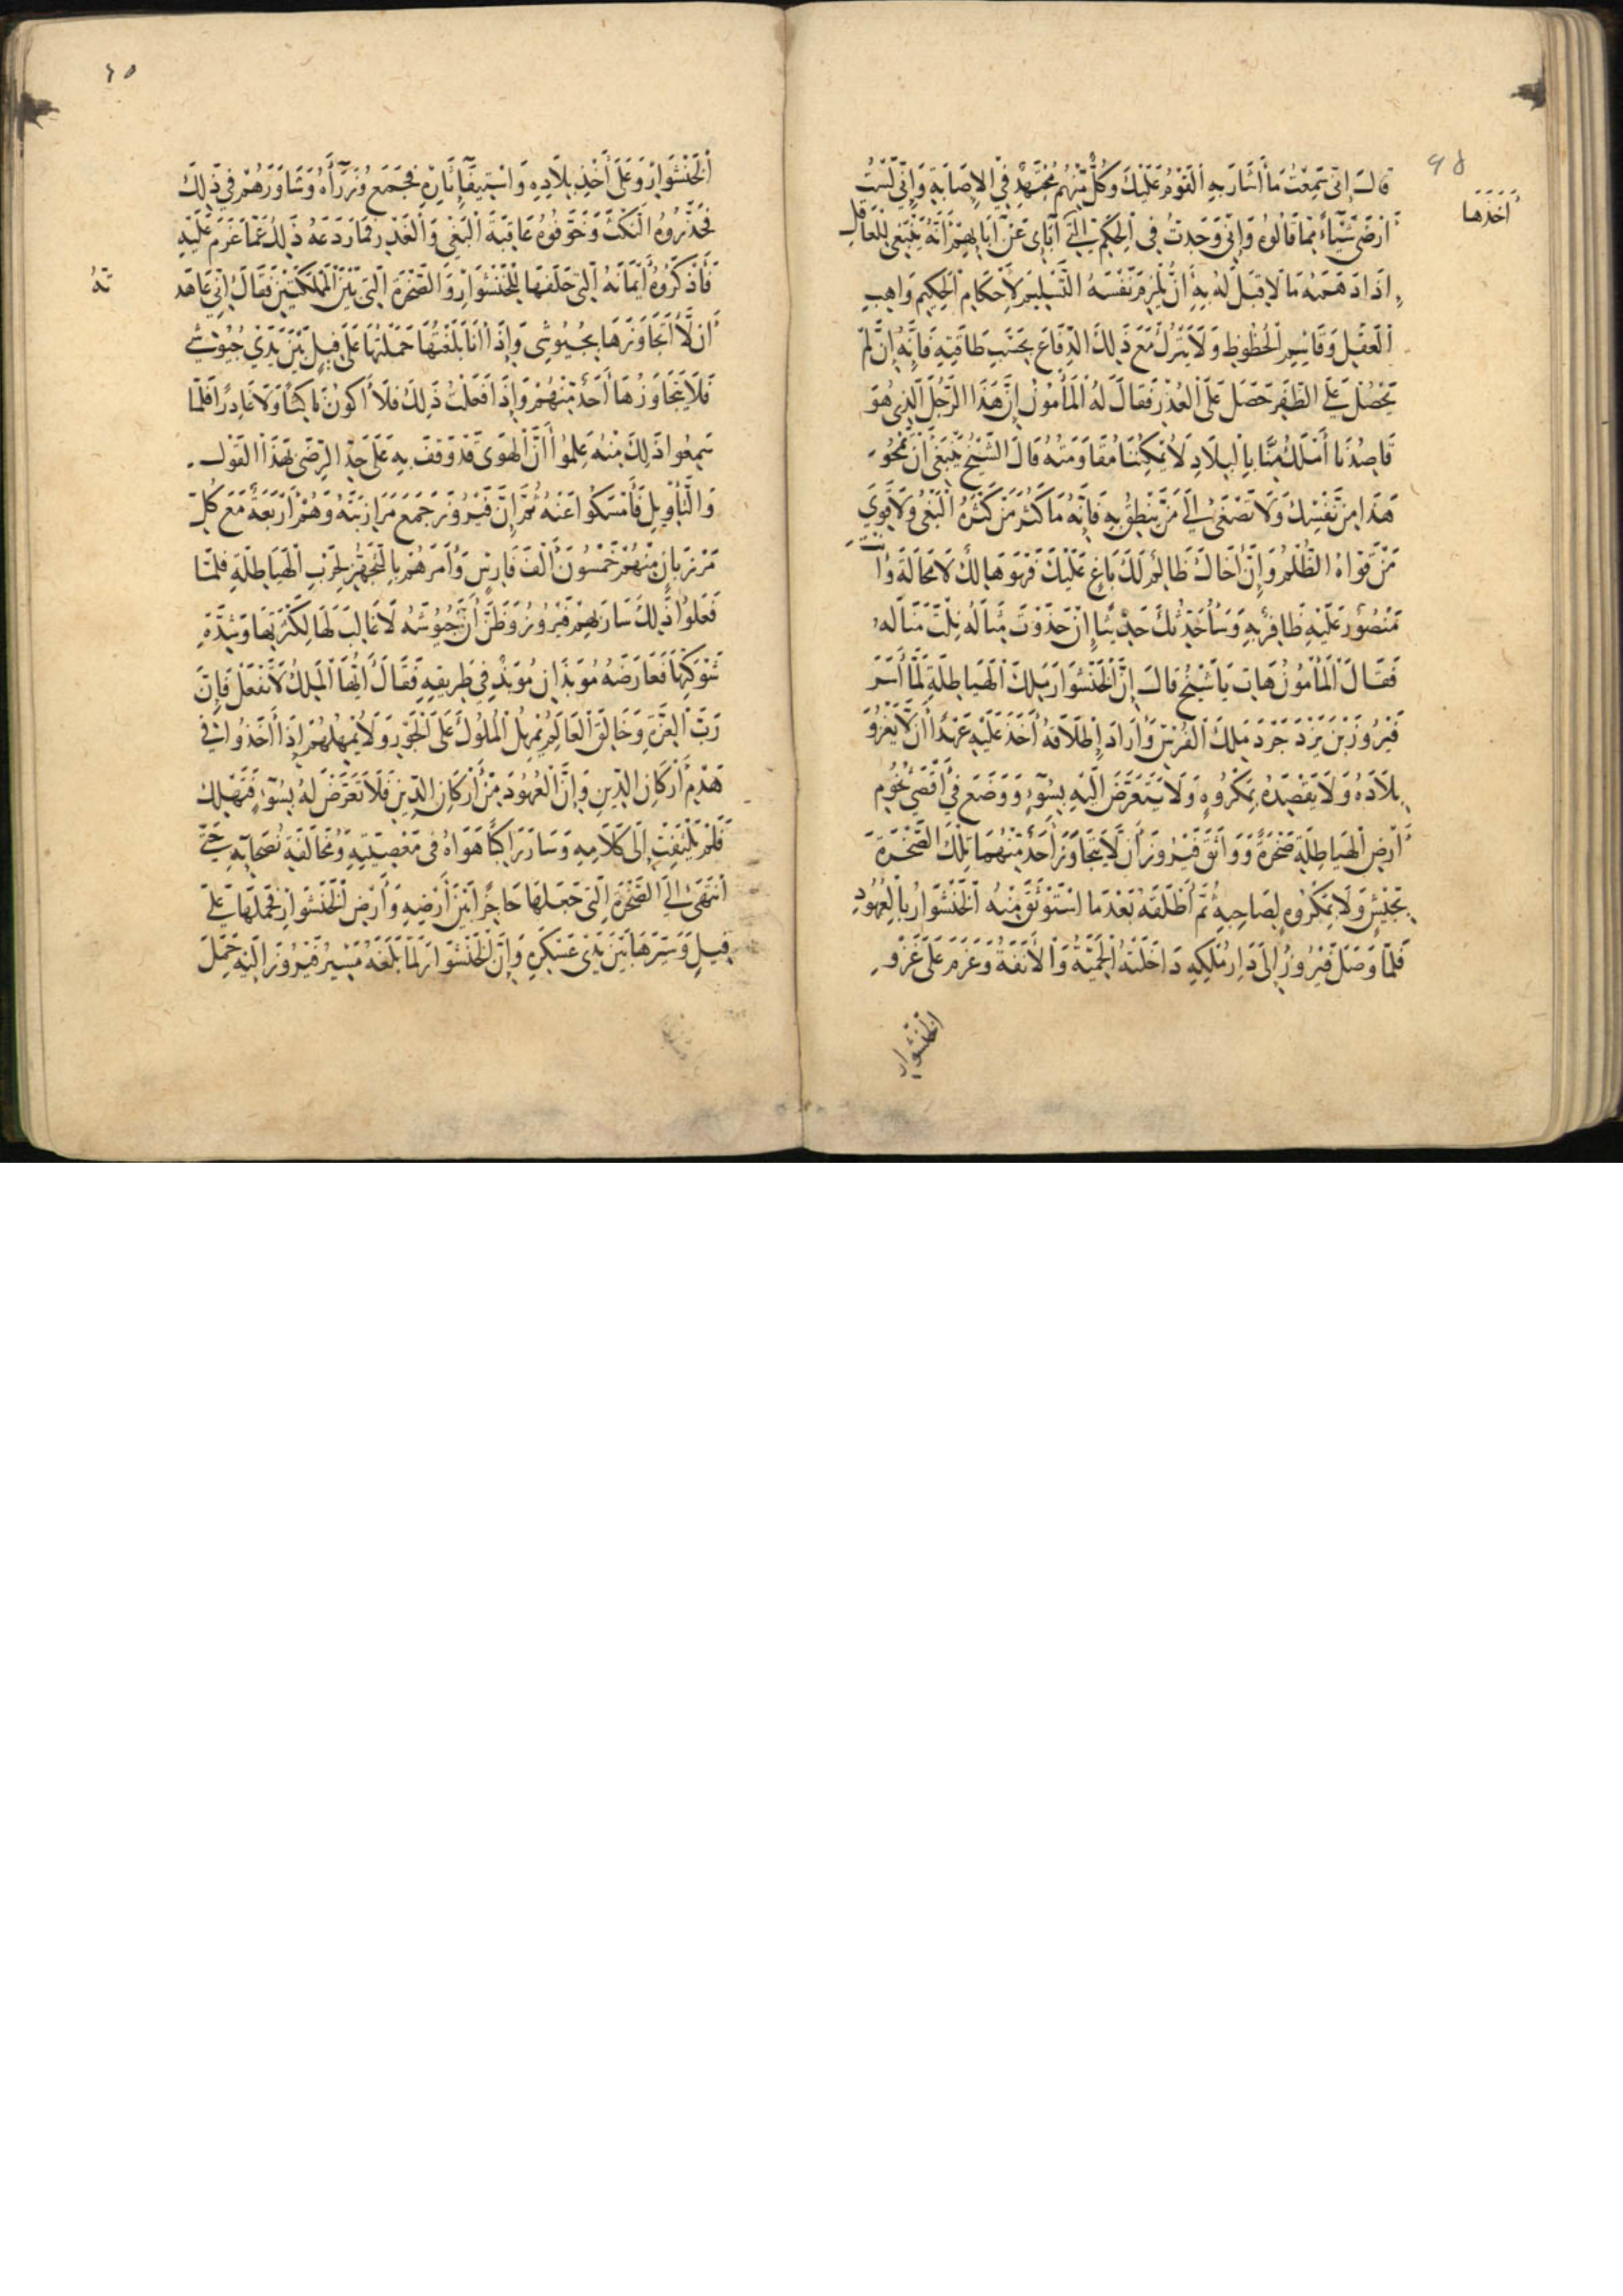 ٩٨
أخذها
قال إني سمعت ما أشار به القوم عليك وكل منهم مجتهد في الإصابة وإني لست
أرضى شيئاً مما قالوه وإني وجدت في الحكم التي آباى عن آبائهم أنه ينبغي للعاقل
إذا دهمه ما لا قبل له به أن يلزم نفسه التسليم لأحكام الحكيم واهب
العقل وقاسم الحظوظ ولا يترك مع ذلك الدفاع بحسب طاقته فإنه إن لم
يحصل على الظفر حصل على العذر فقال له المأمون إن هذا الرجل الذي هو
قاصدنا أملك منا بالبلاد لا يمكننا مقاومته قال الشيخ ينبغي أن تمحو
هذا من نفسك ولا تصغى إلى من ينطق به فإنه ما كثر من كثره البغى ولا قوي
من قواه الظلم وإن أخاك ظالم لك باغ عليك فهو هالك لا محالة وأنت
منصور عليه ظافر به وسأحدثك حديثا إن حذوت مثاله نلت مناله
فقال المأمون هات يا شيخ قال إن الخنشوار ملك الهياطلة لما أسر
فيروز بن يزدجرد ملك الفرس وأراد إطلاقه أخذ عليه عهدا أن لا يغزو
بلاده ولا يقصده بمكروه ولا يتعرض اليه بسوء ووضع في أقصى تخوم
أرض الهياطلة صخرة وواثق فيروز أن لا يتجاوز أحد منهما تلك الصخرة
بجيش ولا بمكروه لصاحبه ثم أطلقه بعد ما استوثق منه الخنشوار بالعهود
فلما وصل فيروز إلى دار ملكه داخلته الحمية والأنفة وعزم على غزو
الخنشوار
٦٥
الخنشوار وعلى أخذ بلاده واستيفاء ثاره فجمع وزرآءه وشاورهم في ذلك
فحذروه النكث وخوفوه عاقبة البغي والغدر فما ردعه ذلك عما عزم عليه
فأذكروه أيمانه التي حلفها للخنشوار والصخرة التي بين المملكتين فقال إني عاهد
ته
أن لا أتجاوزها بجيوشى وإذا أنا بلغتها حملتها على فيل بين يدي جيوشي
فلا يتجاوزها أحد منهم وإذا فعلت ذلك فلا أكون ناكثا ولا غادرا فلما
سمعوا ذلك منه علموا أن الهوى قد وقف به على حد الرضى بهذا القول
والتأويل فأمسكوا عنه ثم إن فيروز جمع مرازبته وهم أربعة مع كل
مرزبان منهم خمسون ألف فارس وأمرهم بالتجهز لحرب الهياطلة فلما
فعلوا ذلك سار بهم فيروز وظن أن جيوشه لا غالب لها لكثرتها وشدة
شوكتها فعارضه موبذان موبذ في طريقه فقال أيها الملك لا تفعل فإن
رب العزة وخالق العالم يمهل الملوك على الجور ولا يمهلهم إذا أخذوا في
هدم أركان الدين وإن العهود من أركان الدين فلا تعرض له بسوء فتهلك
فلم يلتفت إلى كلامه وسار راكبا هواه في معصيته ومخالفة نصحائه حتى
انتهى إلى الصخرة التى جعلها حاجزا بين أرضه وأرض الخنشوار فحملها على
فيل وسيرها بين يدى عسكره وإن الخنشوار لما بلغه مسير فيروز اليه حمل